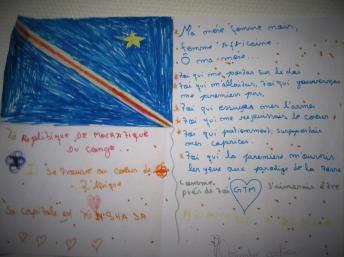 La République DE MOCRATIQUE
Du Congo
Se trouve au coeur de
l'Afrique
Sa capitale est KINSHASA
Ma mère femme noir,
femme Africaine.
Ô ma mère...
toi qui me portas sur le dos
toi qui m'allaitas, toi qui gouvernas
me premiers pas,
toi qui essuyas mes larmes
toi qui me rejouissais le coeur
toi qui patiemment, supportais
mes caprices
toi qui la première m'ouvris
les yeux aux prodige de la terre
comme J'aimerais être
près de toi
GTM